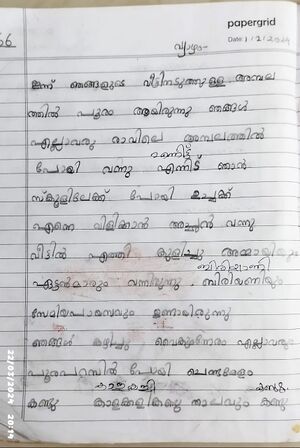 66
papergrid
Date: 1/2/2024
വ്യാഴം
ഇന്ന് ഞങ്ങളുടെ വീട്ടിനടുത്തുള്ള അമ്പല
ത്തിൽ പൂരം ആയിരുന്നു ഞങ്ങൾ
എല്ലാവരു രാവിലെ അമ്പലത്തിൽ
പോയി വന്നു എന്നിട് ഞാൻ
സ്കൂളിലേക്ക് പോയി ഉച്ചക്ക്
എന്നെ വിളിക്കാൻ അച്ഛൻ വന്നു
വീട്ടിൽ എത്തി കുളിച്ചു അമ്മായിയും
ബിരിയാണി
ഏട്ടൻമാരും വന്നിരുന്നു . ബിരിയണിയും
സേമിയപായസവും ഉണായിരുന്നു
ഞങ്ങൾ കഴിച്ചു വൈകുന്നേരം എല്ലാവരും
പൂരപറമ്പിൽ പോയി ചെണ്ടമേളം
കണ്ടു കാളകളികണ്ടു താലവും കണ്ടു
22/03/2024 20:14